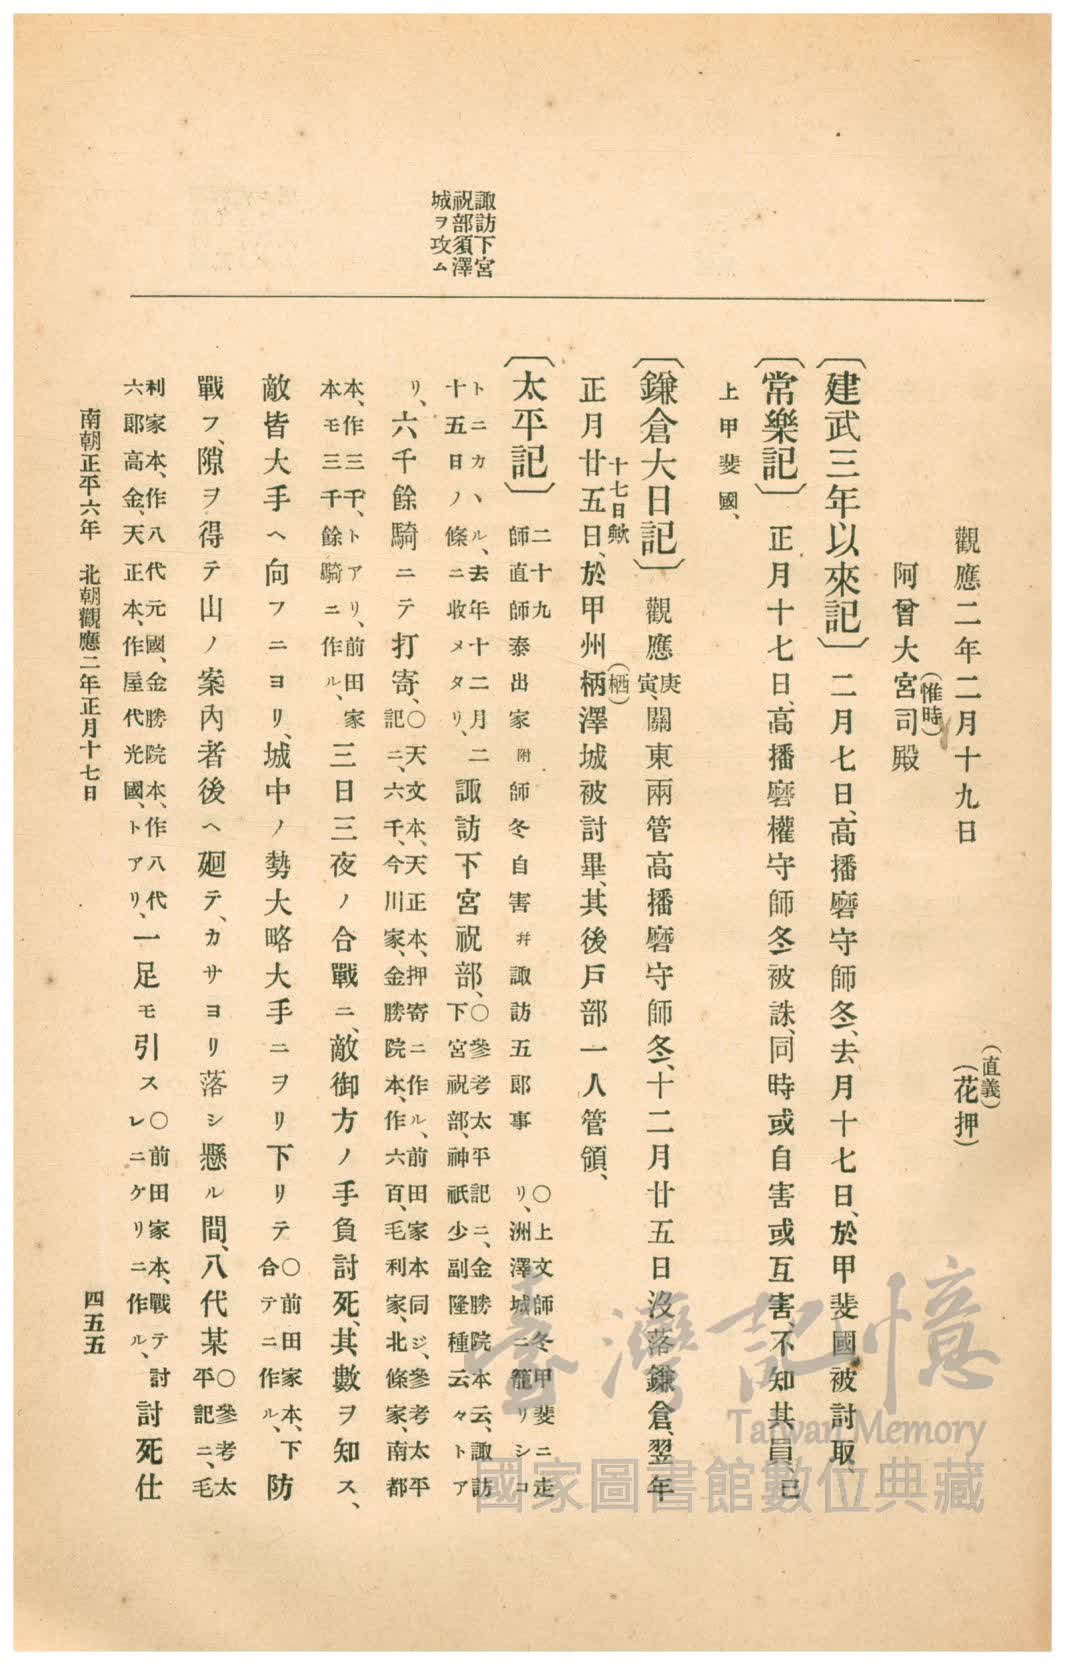 諏訪下宮
祝部須澤
城ヲ攻ム
觀應二年二月十九日
(直義)
(花押)
阿曾大宮司殿
(惟時)
〔建武三年以來記〕 二月七日、高播磨守師冬、去月十七日、於甲斐國被討取、
〔常樂記〕 正月十七日、高播磨權守師冬被誅、同時或自害或互害、不知其員、已
上甲斐國、
〔鎌倉大日記〕 觀應庚寅、關東兩管高播磨守師冬、十二月廿五日沒落鎌倉、翌年
十七日歟
(栖)
正月廿五日、於甲州柄澤城被討畢、其後戶部一人管領、
〔太平記〕 二十九 師直師泰出家附師冬自害幷諏訪五郎事 ○上文師冬甲斐ニ走リ、洲澤城ニ籠リシコ
トニカヽル、去年十二月二十五日ノ條ニ收メタリ、 諏訪下宮祝部、○參考太平記ニ、金勝院本云、諏訪下宮祝部、神祇少副隆種云々トア
リ、六千餘騎ニテ打寄、○天文本、天正本、押寄ニ作ル、前田家本同ジ、參考太平記ニ、六千、今川家、金勝院本、作六百、毛利家、北條家、南都
本、作三千、トアリ、前田家本モ三千餘騎ニ作ル、 三日三夜ノ合戰ニ、敵御方ノ手負討死、其數ヲ知ス、
敵皆大手ヘ向フニヨリ、城中ノ勢大略大手ニヲリ下リテ ○前田家本、下合テニ作ル、 防
戰フ、隙ヲ得テ山ノ案內者後ヘ廻テ、カサヨリ落シ懸ル間、八代某 ○參考太平記ニ、毛
利家本、作八代元國、金勝院本、作八代六郎高金、天正本、作屋代光國、トアリ、 一足モ引スレ ○前田家本、戰テ討ニケリニ作ル、 討死仕
南朝正平六年 北朝觀應二年正月十七日
四五五
臺灣記憶
Taiwan Memory
國家圖書館數位典藏